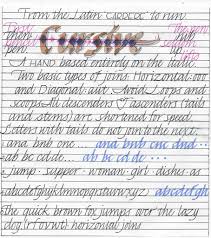 From the Latin CARRERE to run
then Cursive The pen
pen seldom
up into
A HAND based entirely on the italic
Two basic types of joins Horizontal: oo
and Diagonal: aut Avoid Loops and
scoops. All descenders & ascenders (tails
and stems) are shortened for speed.
Letters with tails do not join to the next:
ana, bnb cnc ... ana bnb cnc dnd...
ab bc cd de... ab bc cd de...
jump · supper · woman · girl · dishes · as
abcdefghijklmnopqrstuvwxyz abcdefgh
The quick brown fox jumps over the lazy
dog. (rfovwt) horizontal joins